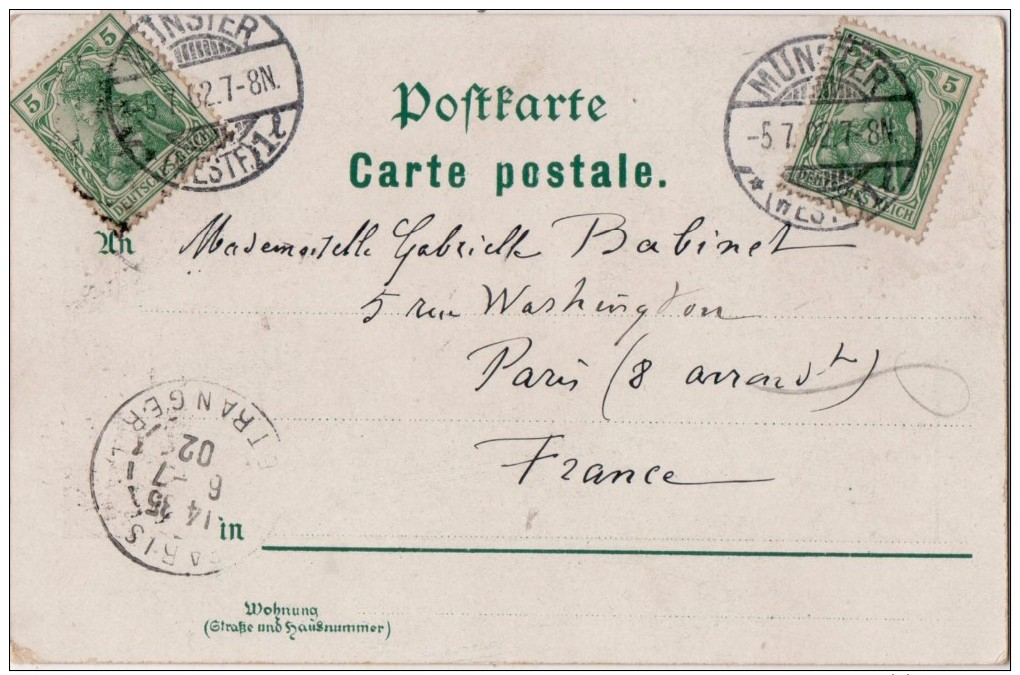 5 MÜNSTER
5.7.02.7-8N.
(WESTF.) 1 l
DEUTSCHES
MÜNSTER 5
-5.7.02.7-8N.
* (WESTF.) l
DEUTSCHES REICH
Postkarte
Carte postale.
An Mademoiselle Gabrielle Babinet
5 rue Washington
Paris (8 arrondt)
France
PARIS ETRANGER
14 35
6 -7
02
in
Wohnung
(Straße und Hausnummer)